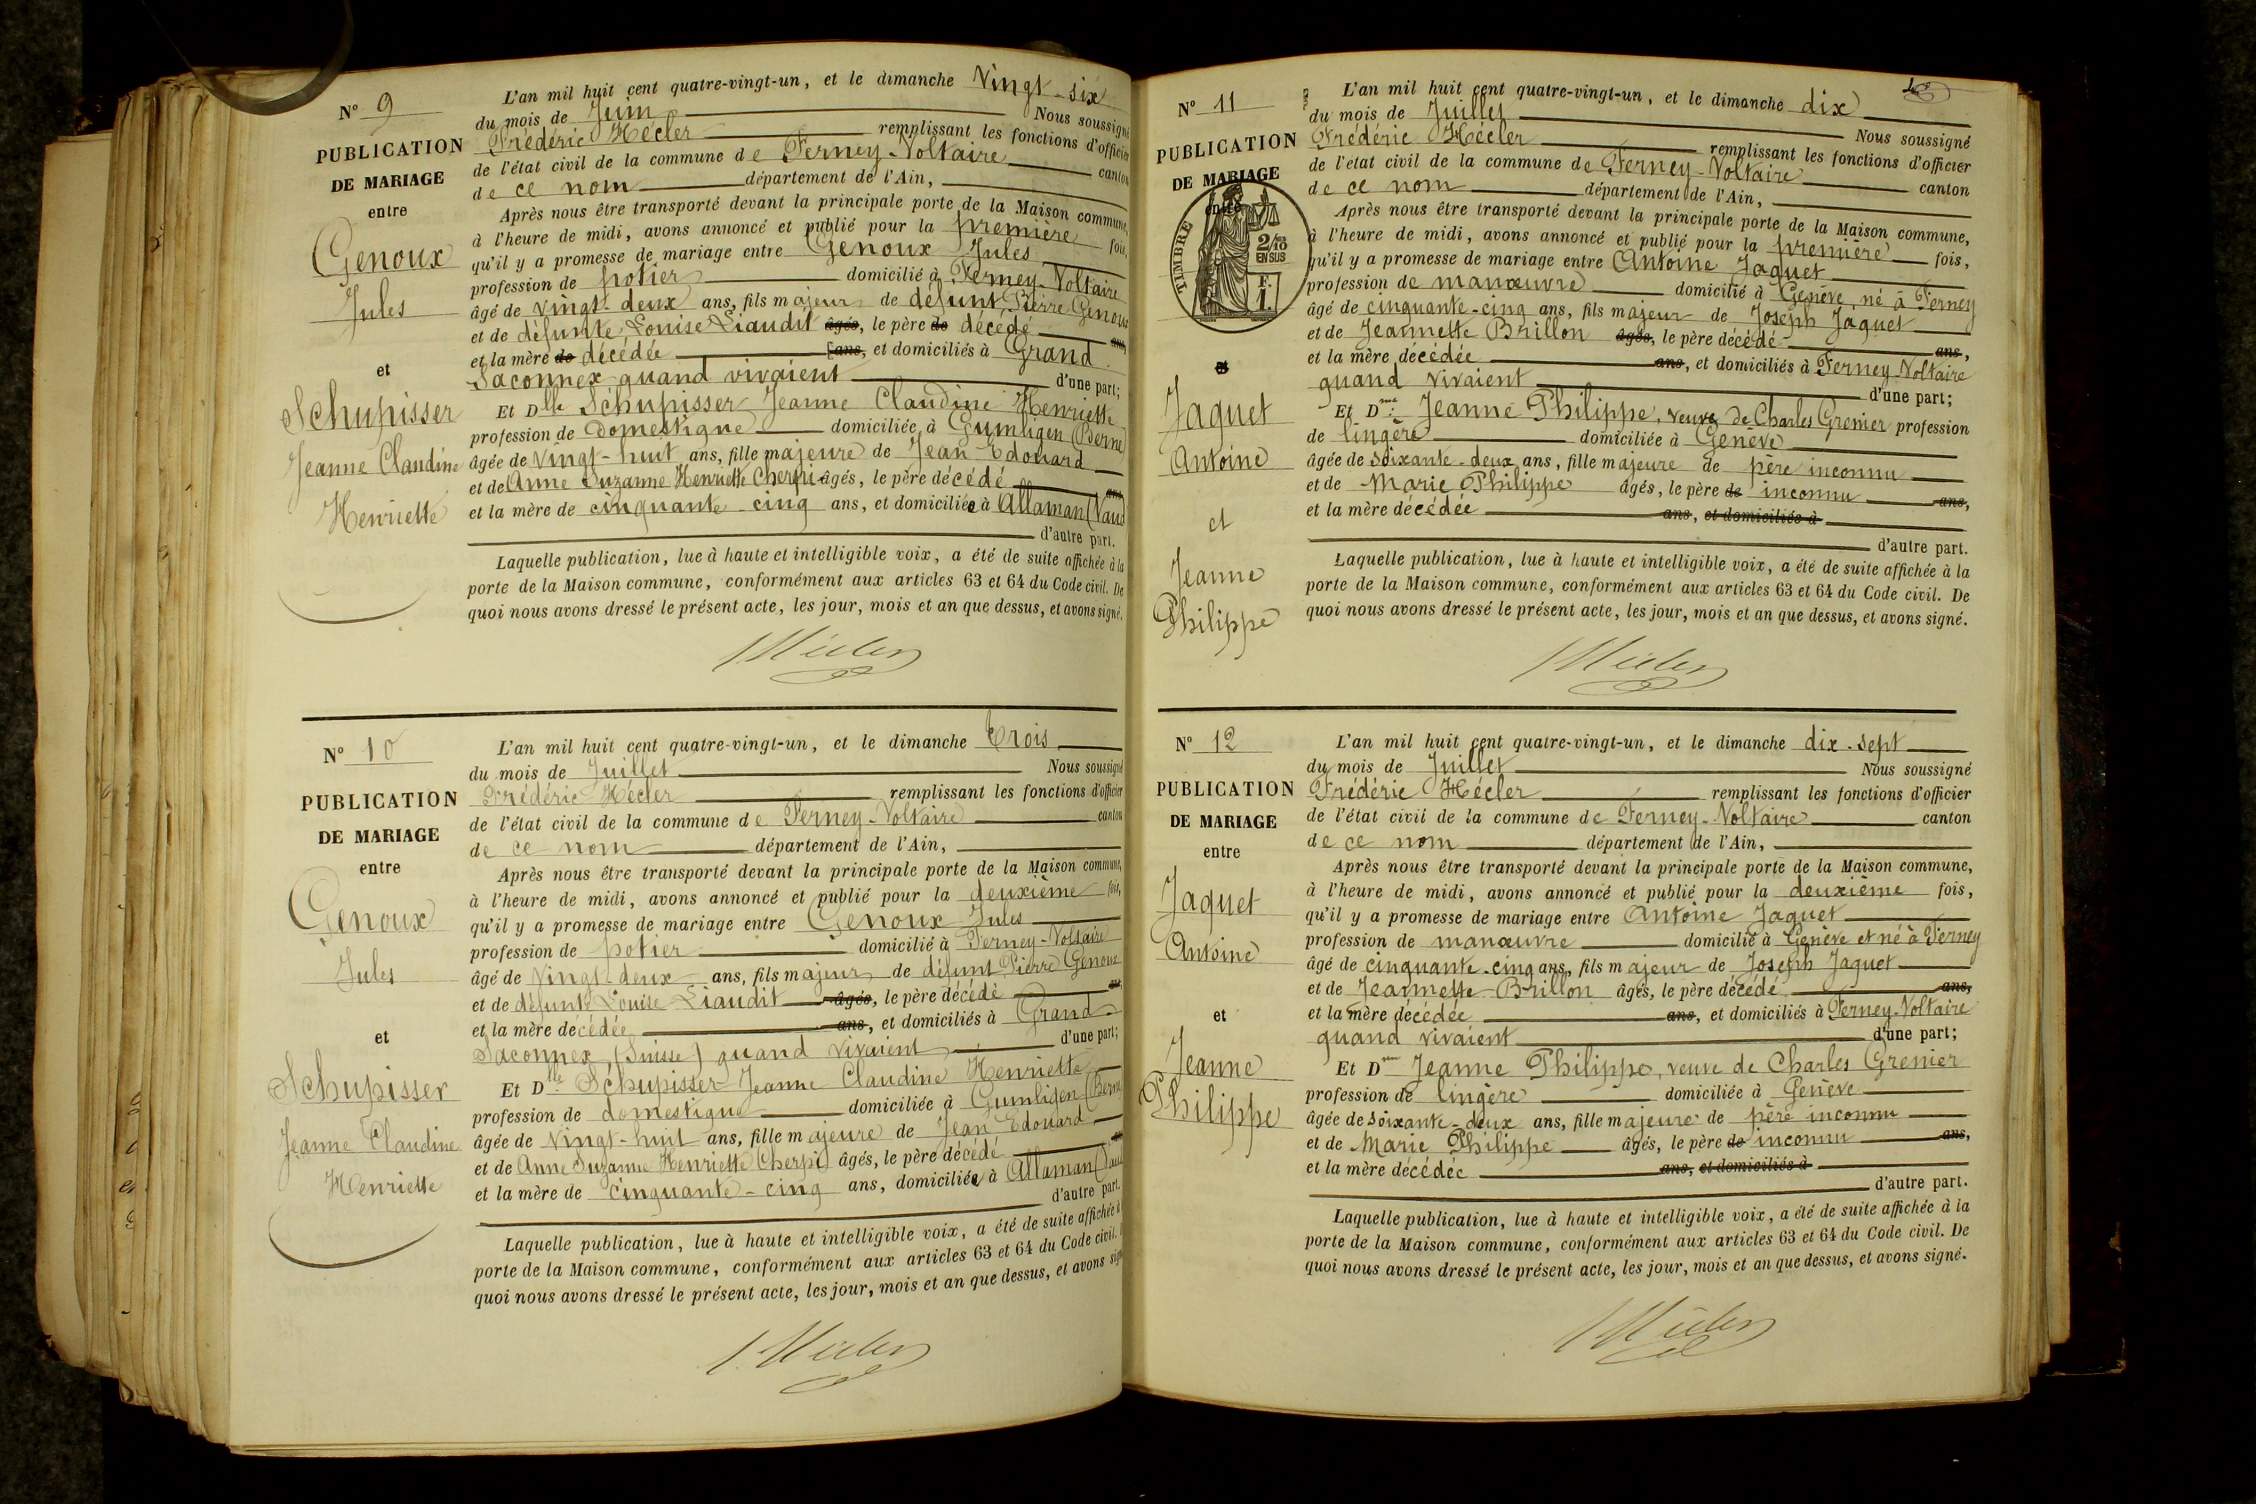 N° 9
PUBLICATION
DE MARIAGE
entre
Genoux
Jules
et
Schupisser
Jeanne Claudine
Henriette
L'an mil huit cent quatre-vingt-un, et le dimanche Vingt-six
du mois de Juin Nous soussigné
Frédéric Hécler remplissant les fonctions d'officier
de l'état civil de la commune de Ferney-Voltaire canton
de ce nom département de l'Ain,
Après nous être transporté devant la principale porte de la Maison commune,
à l'heure de midi, avons annoncé et publié pour la première fois,
qu'il y a promesse de mariage entre Genoux Jules
profession de potier domicilié à Ferney-Voltaire
âgé de vingt-deux ans, fils majeur de défunt Pierre Genoux
et de défunte Louise Liaudit âgés, le père de décédé ans,
et la mère de décédée ans, et domiciliés à Grand
Saconnex quand vivaient d'une part;
Et Dlle Schupisser Jeanne Claudine Henriette
profession de Domestique domiciliée à Gumligen (Berne)
âgée de Vingt-huit ans, fille majeure de Jean Edouard
et de Anne Suzanne Henriette Cherpi âgés, le père décédé ans,
et la mère de cinquante cinq ans, et domiciliée à Allaman (Vaud
d'autre part.
Laquelle publication, lue à haute et intelligible voix, a été de suite affichée à la
porte de la Maison commune, conformément aux articles 63 et 64 du Code civil. De
quoi nous avons dressé le présent acte, les jour, mois et an que dessus, et avons signé.
Hécler
N° 10
PUBLICATION
DE MARIAGE
entre
Genoux
Jules
et
Schupisser
Jeanne Claudine
Henriette
L'an mil huit cent quatre-vingt-un, et le dimanche Trois
du mois de Juillet Nous soussigné
Frédéric Hécler remplissant les fonctions d'officier
de l'état civil de la commune de Ferney-Voltaire canton
de ce nom département de l'Ain,
Après nous être transporté devant la principale porte de la Maison commune,
à l'heure de midi, avons annoncé et publié pour la deuxième fois,
qu'il y a promesse de mariage entre Genoux Jules
profession de potier domicilié à Ferney-Voltaire
âgé de Vingt-deux ans, fils majeur de défunt Pierre Genoux
et de défunte Louise Liaudit âgés, le père décédé ans,
et la mère décédée ans, et domiciliés à Grand
Saconnex (Suisse) quand vivaient d'une part;
Et Dlle Schupisser Jeanne Claudine Henriette
profession de domestique domiciliée à Gumligen (Berne
âgée de Vingt-huit ans, fille majeure de Jean Edouard
et de Anne Suzanne Henriette Cherpi âgés, le père décédé ans,
et la mère de cinquante-cinq ans, domiciliée à Allaman (Vaud
d'autre part.
Laquelle publication, lue à haute et intelligible voix, a été de suite affichée à
porte de la Maison commune, conformément aux articles 63 et 64 du Code civil.
quoi nous avons dressé le présent acte, les jour, mois et an que dessus, et avons signé
Hécler
N° 11
PUBLICATION
DE MARIAGE
entre
TIMBRE
2/10
EN SUS
F.
1.
et
Jaquet
Antoine
et
Jeanne
Philippe
L'an mil huit cent quatre-vingt-un, et le dimanche dix
du mois de Juillet Nous soussigné
Frédéric Hécler remplissant les fonctions d'officier
de l'état civil de la commune de Ferney-Voltaire canton
de ce nom département de l'Ain,
Après nous être transporté devant la principale porte de la Maison commune,
à l'heure de midi, avons annoncé et publié pour la première fois,
qu'il y a promesse de mariage entre Antoine Jaquet
profession de manœuvre domicilié à Genève, né à Ferney
âgé de cinquante-cinq ans, fils majeur de Joseph Jaquet
et de Jeannette Brillon âgés, le père décédé ans,
et la mère décédée ans, et domiciliés à Ferney-Voltaire
quand vivaient d'une part;
Et Dme Jeanne Philippe, veuve de Charles Grenier profession
de lingère domiciliée à Genève
âgée de soixante-deux ans, fille majeure de père inconnu
et de Marie Philippe âgés, le père de inconnu ans,
et la mère décédée ans, et domiciliés à
d'autre part.
Laquelle publication, lue à haute et intelligible voix, a été de suite affichée à la
porte de la Maison commune, conformément aux articles 63 et 64 du Code civil. De
quoi nous avons dressé le présent acte, les jour, mois et an que dessus, et avons signé.
Hécler
N° 12
PUBLICATION
DE MARIAGE
entre
Jaquet
Antoine
et
Jeanne
Philippe
L'an mil huit cent quatre-vingt-un, et le dimanche dix-sept
du mois de Juillet Nous soussigné
Frédéric Hécler remplissant les fonctions d'officier
de l'état civil de la commune de Ferney-Voltaire canton
de ce nom département de l'Ain,
Après nous être transporté devant la principale porte de la Maison commune,
à l'heure de midi, avons annoncé et publié pour la deuxième fois,
qu'il y a promesse de mariage entre Antoine Jaquet
profession de manœuvre domicilié à Genève et né à Ferney
âgé de cinquante-cinq ans, fils majeur de Joseph Jaquet
et de Jeannette Brillon âgés, le père décédé ans,
et la mère décédée ans, et domiciliés à Ferney-Voltaire
quand vivaient d'une part;
Et Dme Jeanne Philippe, veuve de Charles Grenier
profession de lingère domiciliée à Genève
âgée de soixante-deux ans, fille majeure de père inconnu
et de Marie Philippe âgés, le père de inconnu ans,
et la mère décédée ans, et domiciliés à
d'autre part.
Laquelle publication, lue à haute et intelligible voix, a été de suite affichée à la
porte de la Maison commune, conformément aux articles 63 et 64 du Code civil. De
quoi nous avons dressé le présent acte, les jour, mois et an que dessus, et avons signé.
Hécler